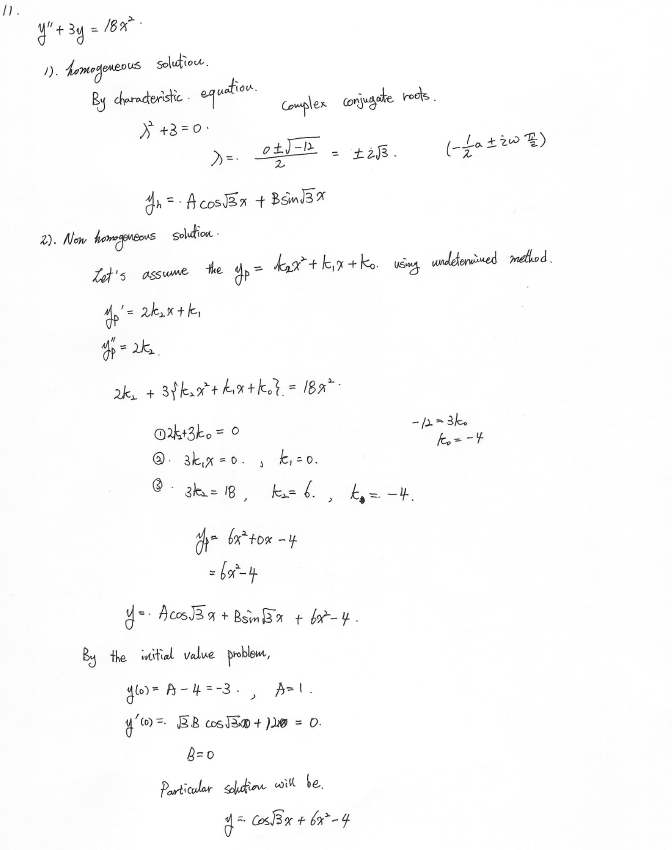 11.
y'' + 3y = 18x².
1). homogeneous solution.
By characteristic. equation. Complex conjugate roots.
λ² + 3 = 0.
λ = (0 ± √-12) / 2 = ± i√3. (-½a ± iω π/2)
yh = A cos√3 x + B sin√3 x
2). Non homogeneous solution.
Let's assume the yp = k₂x² + k₁x + k₀. using undetermined method.
yp' = 2k₂x + k₁
yp'' = 2k₂.
2k₂ + 3{k₂x² + k₁x + k₀} = 18x².
① 2k₂ + 3k₀ = 0 -12 = 3k₀
②. 3k₁x = 0. , k₁ = 0. k₀ = -4
③. 3k₂ = 18 , k₂ = 6. , k₀ = -4.
yp = 6x² + 0x - 4
= 6x² - 4
y = A cos√3 x + B sin√3 x + 6x² - 4.
By the initial value problem,
y(0) = A - 4 = -3. , A = 1.
y'(0) = √3 B cos√3·0 + 12·0 = 0.
B = 0
Particular solution will be.
y = cos√3 x + 6x² - 4